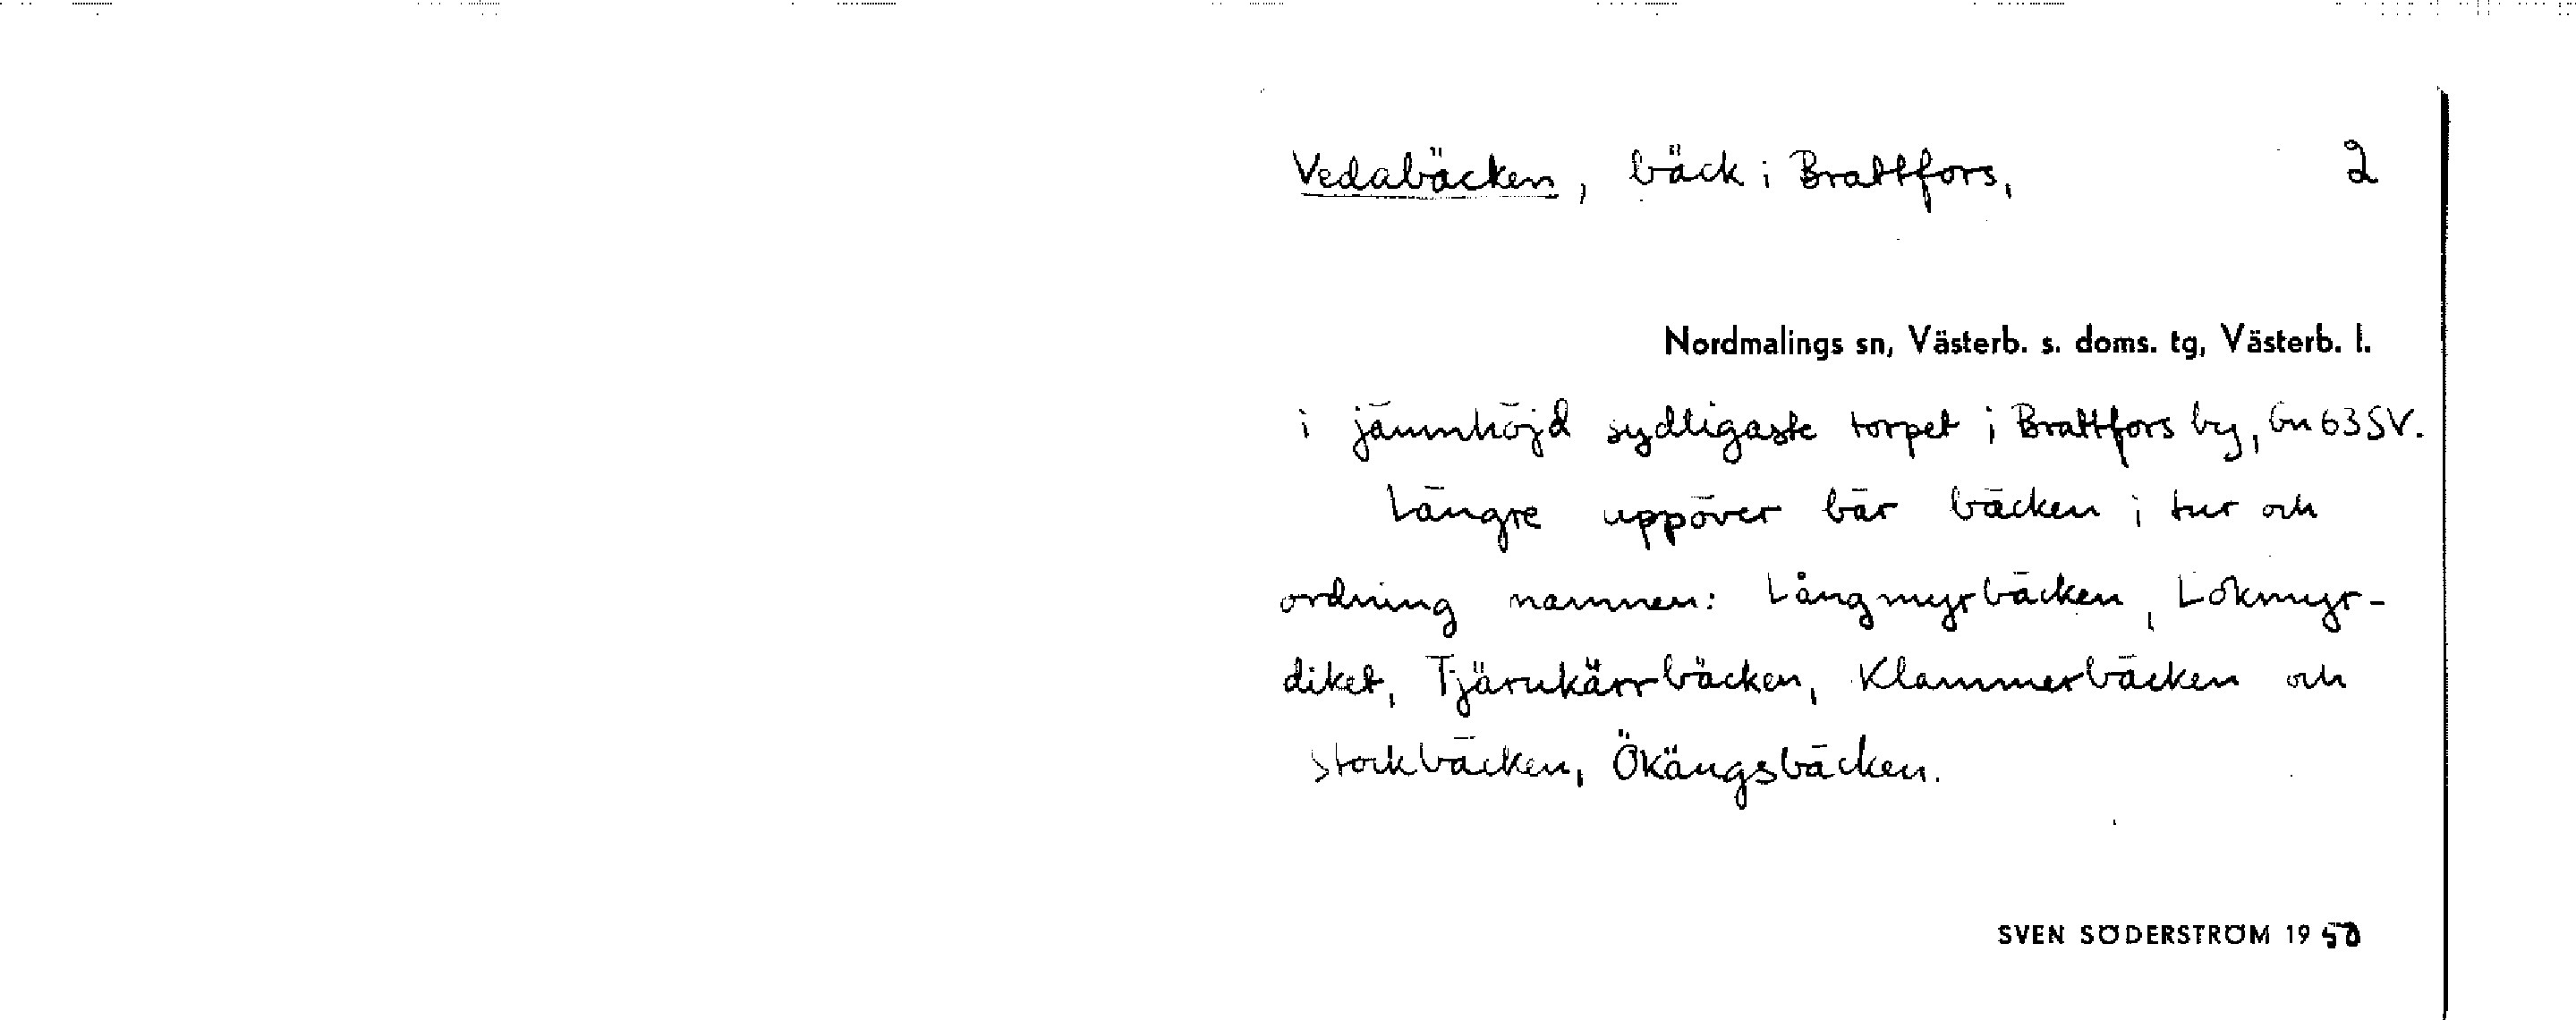 Vedabäcken, bäck i Brattfors, 2
Nordmalings sn, Västerb. s. doms. tg, Västerb. l.
i jämnhöjd sydligaste torpet i Brattfors by, Gn 63 SV.
Längre uppöver bär bäcken i tur och
ordning namnen: Långmyrbäcken, Lokmyr-
diket, Tjärukärrbäcken, Klammerbäcken och
Stockbäcken, Ökängsbäcken.
SVEN SÖDERSTRÖM 1950